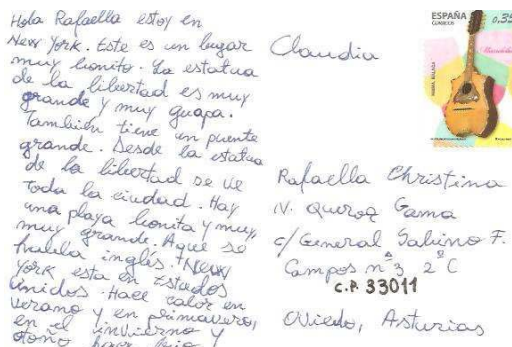 Hola Rafaella estoy en
New York. Este es un lugar
muy bonito. La estatua
de la libertad es muy
grande y muy guapa.
También tiene un puente
grande. Desde la estatua
de la libertad se ve
toda la ciudad. Hay
una playa bonita y muy,
muy grande. Aquí se
habla inglés. New
York esta en Estados
Unidos. Hace calor en
verano y en primavera,
en el invierno y
otoño hace frio
Claudia
ESPAÑA
CORREOS
0,35
Rafaella Christina
N. Gama
c/ General Sabino F.
Campos nº3 2º C
C.P. 33011
Oviedo, Asturias